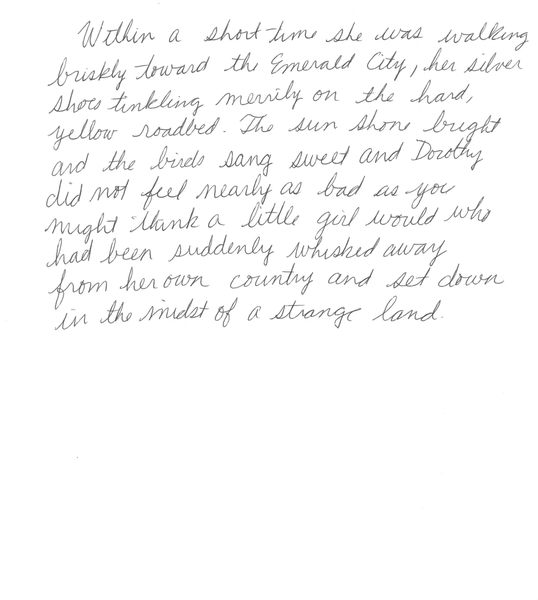 Within a short time she was walking
briskly toward the Emerald City, her silver
shoes tinkling merrily on the hard,
yellow roadbed. The sun shone bright
and the birds sang sweet and Dorothy
did not feel nearly as bad as you
might think a little girl would who
had been suddenly whisked away
from her own country and set down
in the midst of a strange land.